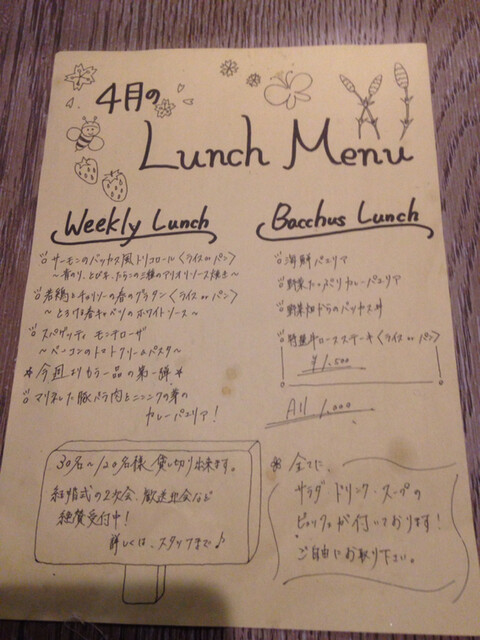 4月の
Lunch Menu
Weekly Lunch
サーモンのバッカス風トリコロール〈ライス or パン〉
〜青のり、とびき、たらこの三種のアリオリソース焼き〜
若鶏とチョリソーの春のグラタン〈ライス or パン〉
〜とろける春キャベツのホワイトソース〜
スパゲッティ モンテローザ
〜ベーコンのトマトクリームパスタ〜
＊今週よりもう一品の第一弾＊
マリネした豚バラ肉とニンニクの芽の
カレーパエリア！
Bacchus Lunch
海鮮パエリア
野菜たっぷりカレーパエリア
野菜畑からのバッカス丼
特選牛ロースステーキ〈ライス or パン〉
¥1,500
All 1,000
30名〜120名様 貸し切り出来ます。
結婚式の2次会、歓送迎会など
絶賛受付中！
詳しくは、スタッフまで♪
＊全てに、
サラダ・ドリンク・スープの
ビュッフェが付いております！
ご自由にお取り下さい。